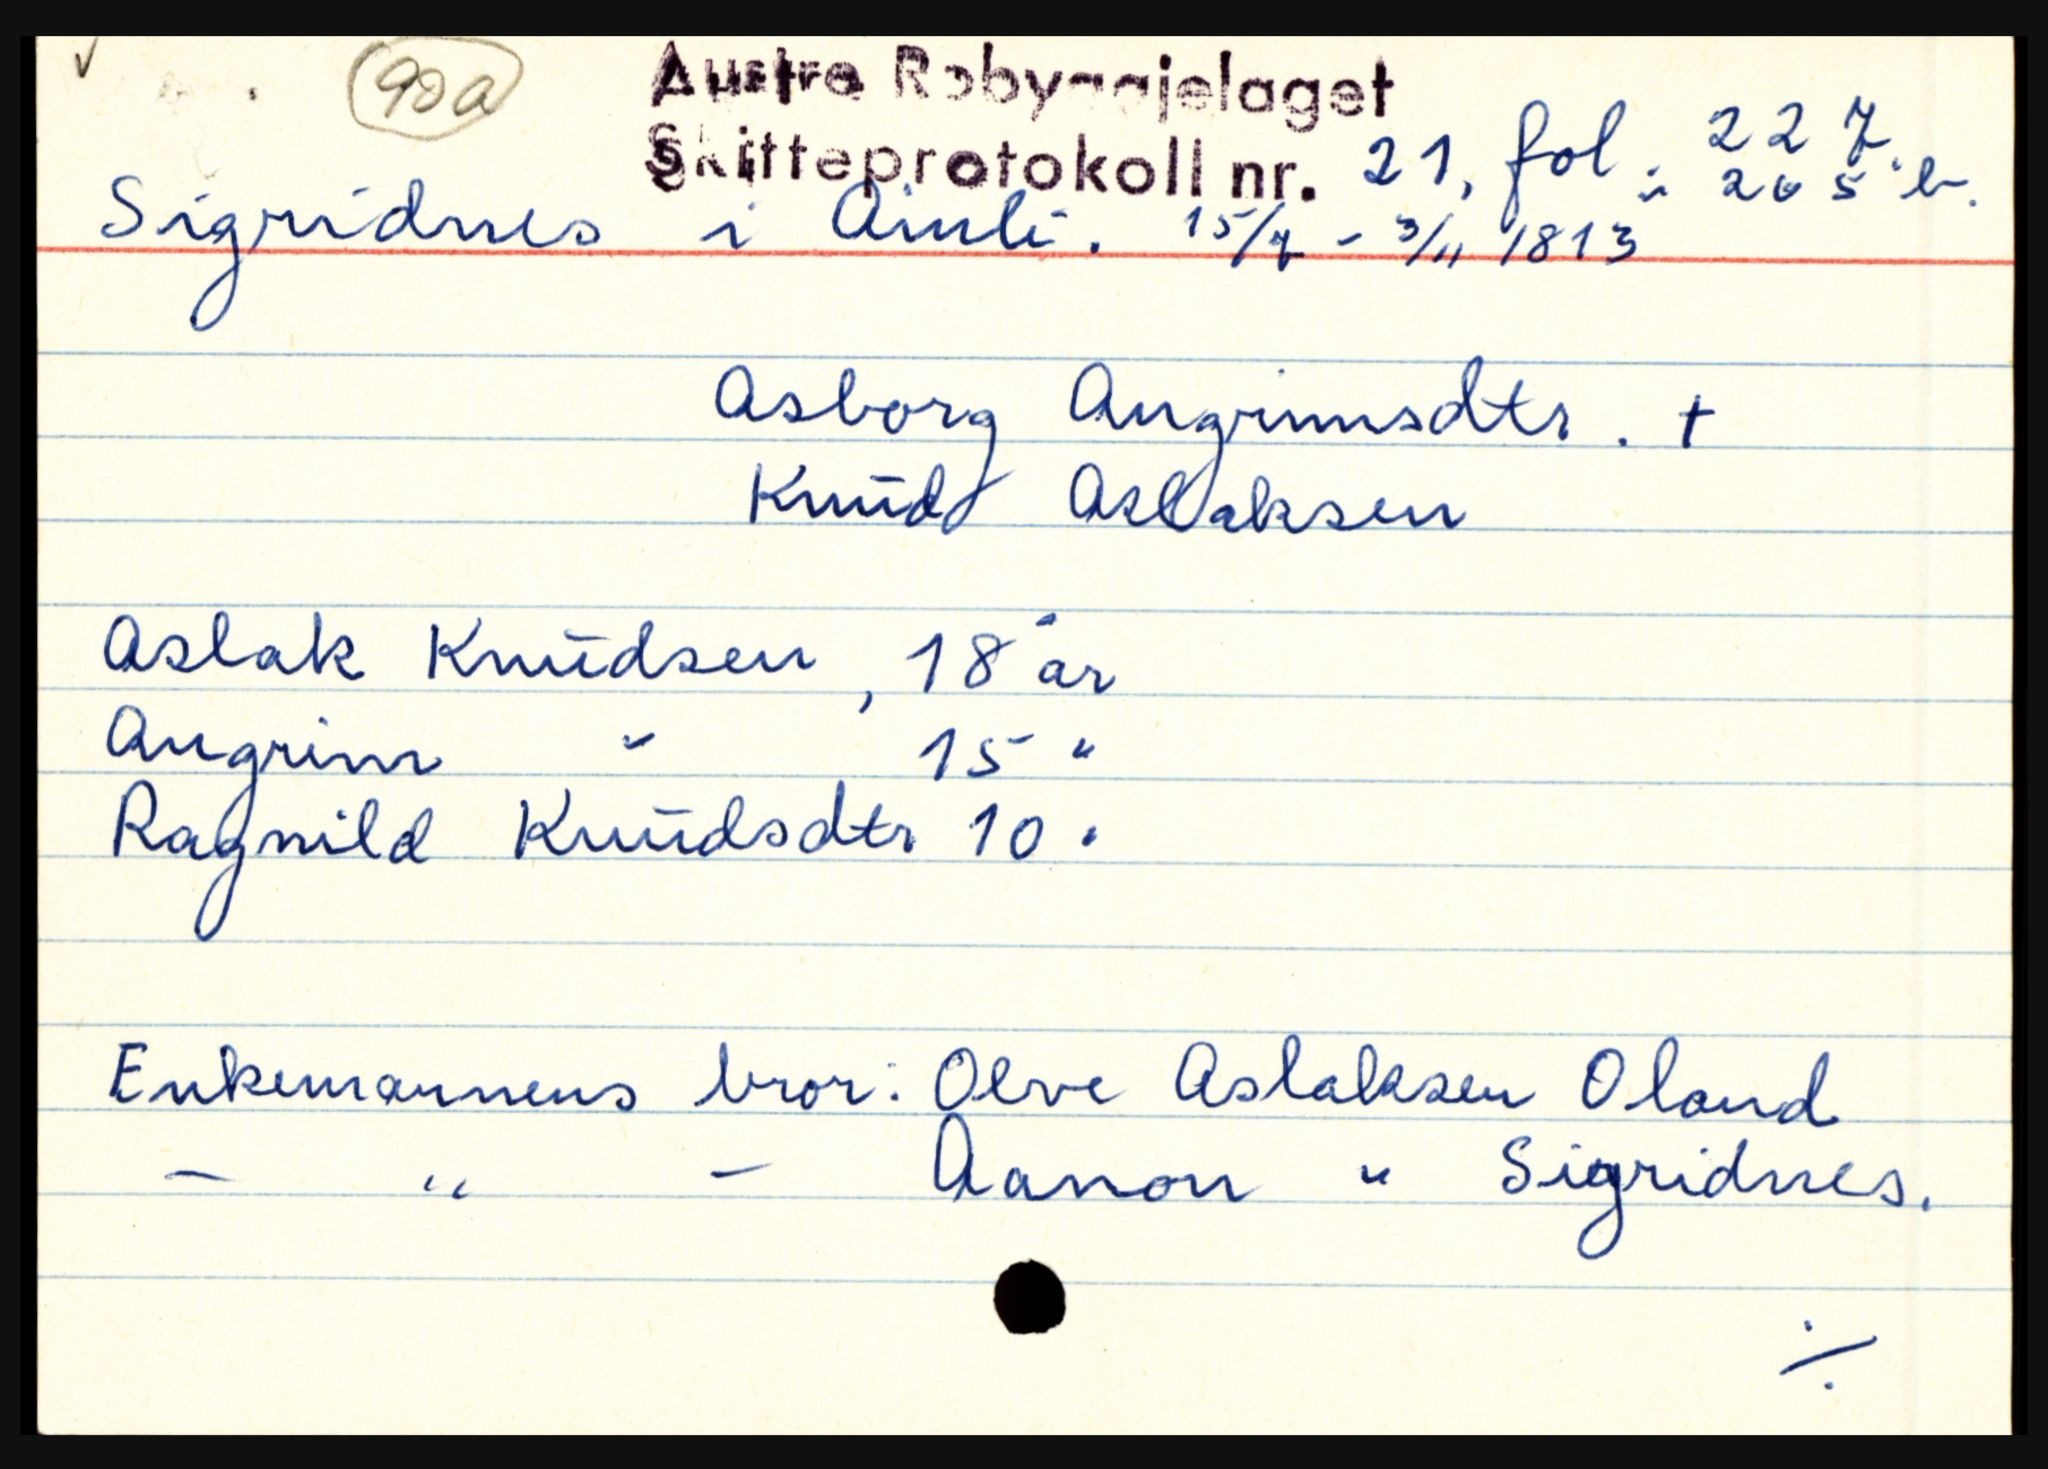 ✓ 90a
Austre Robyggjelaget
Skifteprotokoll nr. 21, fol. 227.
" 205 b.
Sigridnes i Åmli. 15/7 - 3/11 1813
Asborg Angrimsdtr. †
Knud Aslaksen
Aslak Knudsen, 18 år
Angrim " 15 "
Ragnild Knudsdtr 10 "
Enkemannens bror: Olve Aslaksen Oland
- " - Aanon " Sigridnes.